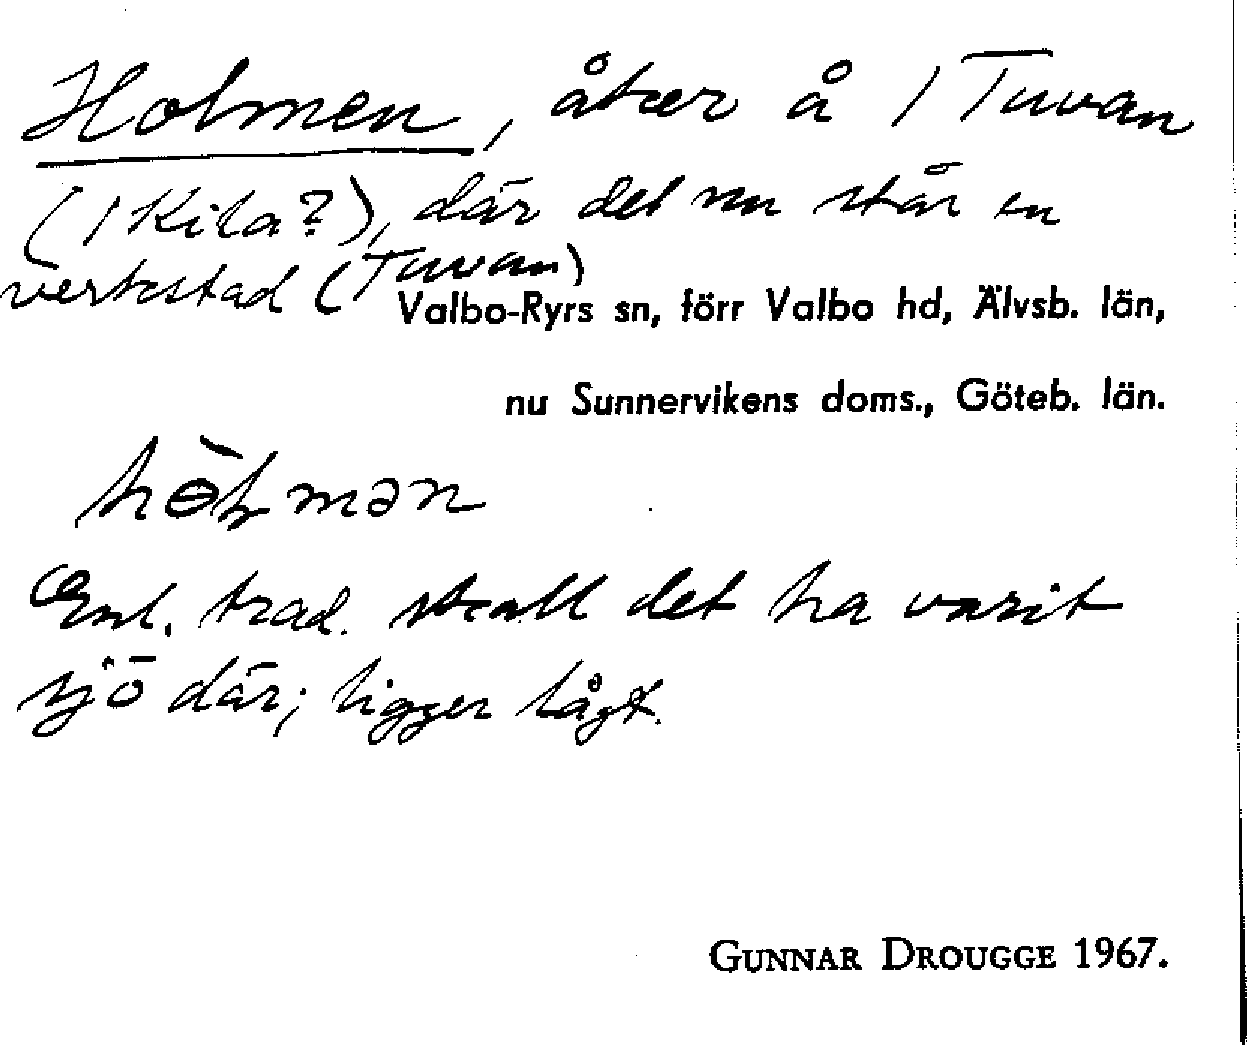 Holmen, åker å /Tuvan
(/Kila?), där det nu står en
verkstad (Tuvan)
Valbo-Ryrs sn, förr Valbo hd, Älvsb. län,
nu Sunnervikens doms., Göteb. län.
hɵ̀ɫmən
Enl. trad. skall det ha varit
sjö där; ligger lågt.
GUNNAR DROUGGE 1967.